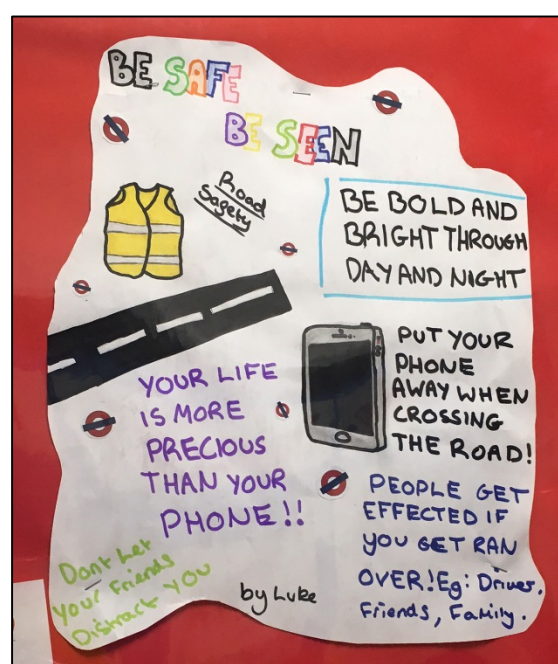 BE SAFE
BE SEEN
Road
Sagety
BE BOLD AND
BRIGHT THROUGH
DAY AND NIGHT
PUT YOUR
PHONE
AWAY WHEN
CROSSING
THE ROAD!
YOUR LIFE
IS MORE
PRECIOUS
THAN YOUR
PHONE!!
PEOPLE GET
EFFECTED IF
YOU GET RAN
OVER! Eg: Drives,
Friends, Family.
Dont Let
Your Friends
Distract YOU
by Luke